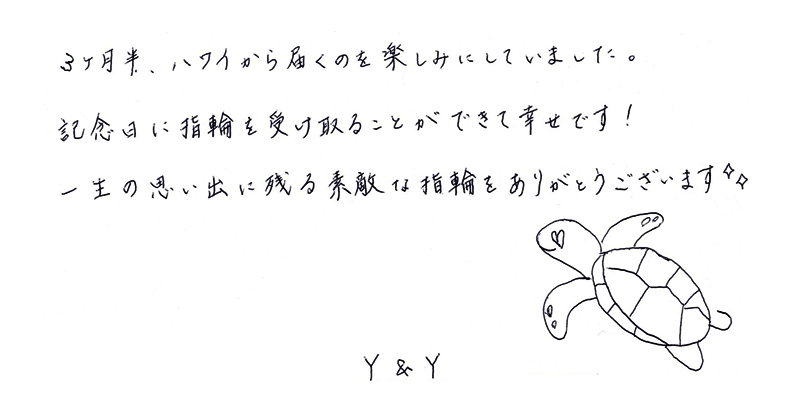 3ヶ月半、ハワイから届くのを楽しみにしていました。
記念日に指輪を受け取ることができて幸せです!
一生の思い出に残る素敵な指輪をありがとうございます✧✧
Y & Y